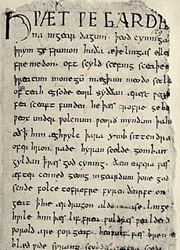 HǷÆT ǷE GARDE
na ingear dagum þeod cyninga
þrym ge frunon huða æþelingas elle
fre medon. oft scyld scefing sceaþe
þreatum monegū mægþum meodo setl
of teah egsode eorl syððan ærest
fea sceaft funden he þæs frofre geba
ƿeox under ƿolcnum ƿeorð myndum þah
oð þ him æghƿylc þara ymb sittendra
ofer hron rade hyran scolde gomban
gyldan þ ƿæs god cyning. ðæm eafera ƿæs
æfter cenned geong ingeardum þone god
sende folce tofrofre fyren ðearfe on
geat þ hie ær drugon aldor ase. lange
hƿile him þæs lif frea ƿuldres ƿeald
ƿorold are for geaf. beoƿulf ƿæs breme
blæd ƿide sprang